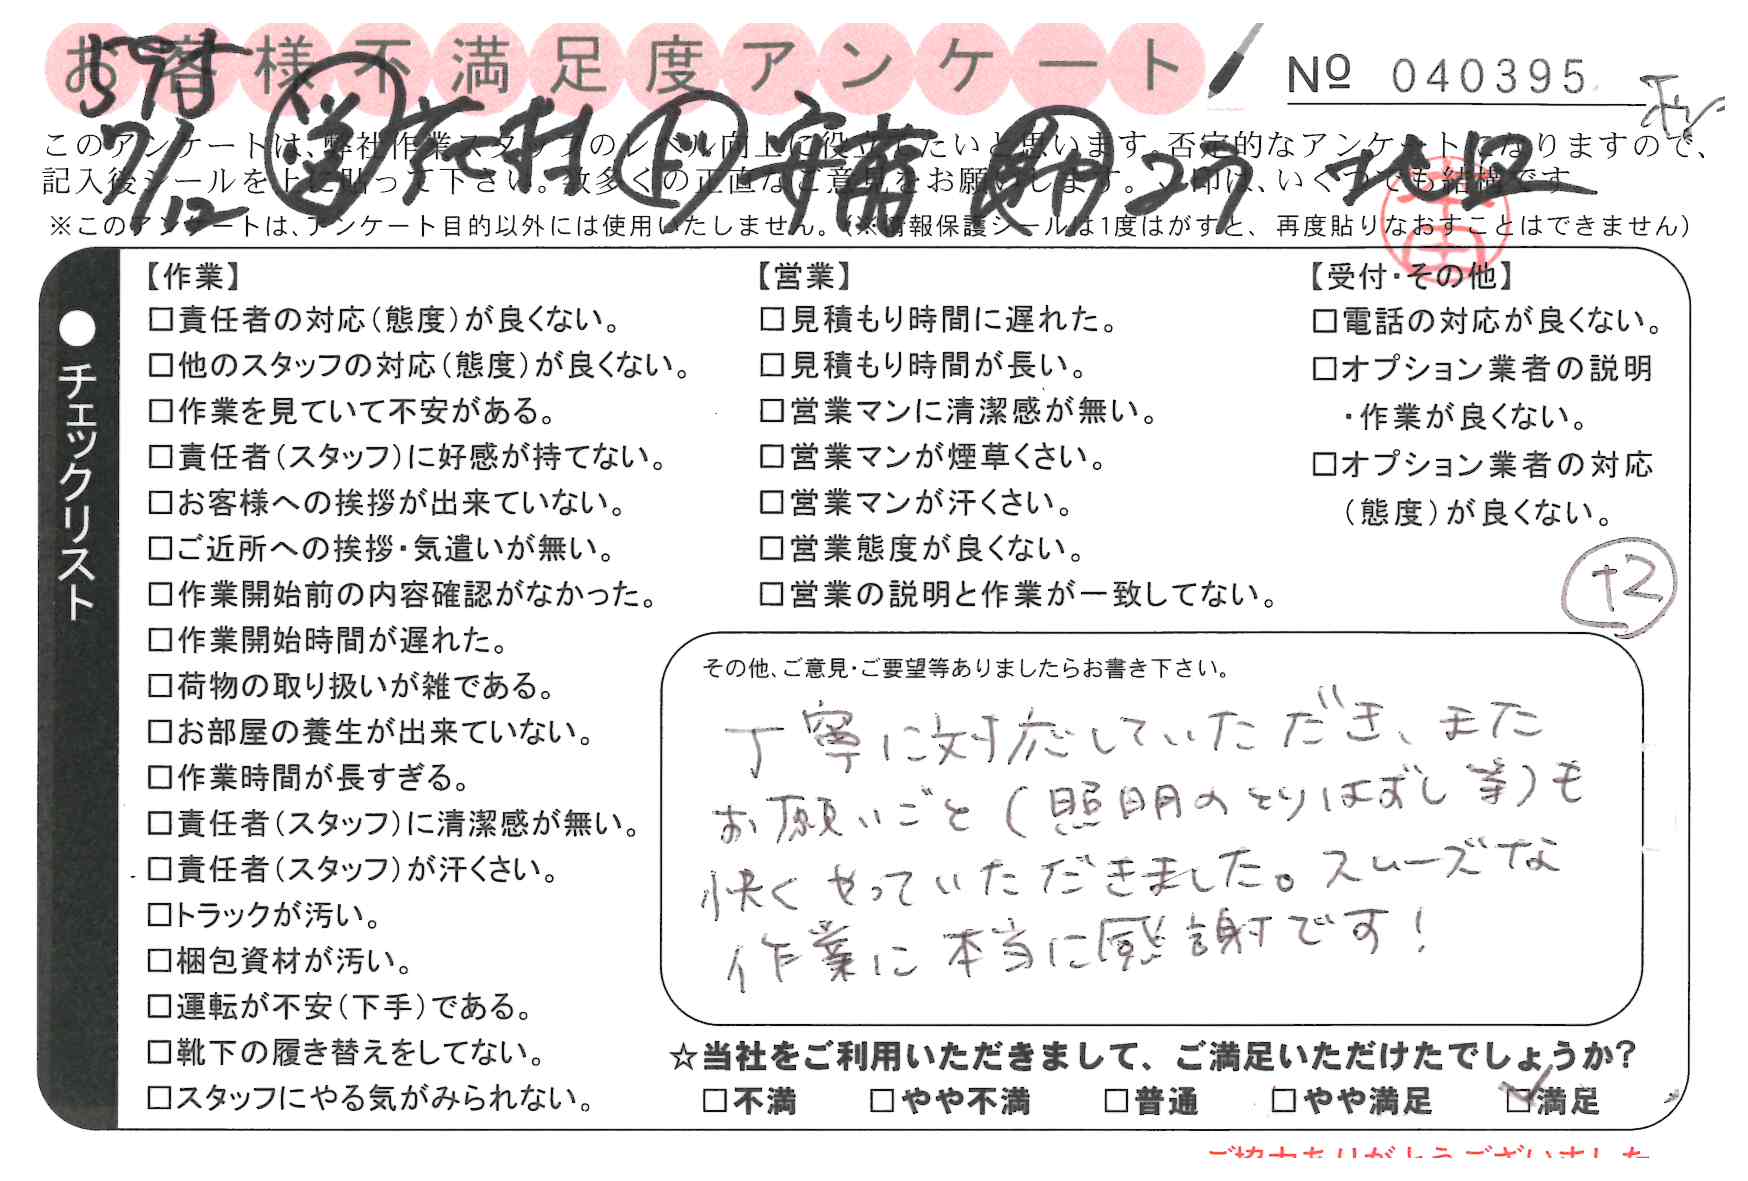 お客様不満足度アンケート
№ 040395
7/12
このアンケートは、弊社作業スタッフのレベル向上に役立てたいと思います。否定的なアンケートになりますので、
記入後シールを上に貼って下さい。数多くの正直なご意見をお願いします。レ印は、いくつでも結構です。
※このアンケートは、アンケート目的以外には使用いたしません。(※情報保護シールは1度はがすと、再度貼りなおすことはできません)
●チェックリスト
【作業】
□責任者の対応(態度)が良くない。
□他のスタッフの対応(態度)が良くない。
□作業を見ていて不安がある。
□責任者(スタッフ)に好感が持てない。
□お客様への挨拶が出来ていない。
□ご近所への挨拶・気遣いが無い。
□作業開始前の内容確認がなかった。
□作業開始時間が遅れた。
□荷物の取り扱いが雑である。
□お部屋の養生が出来ていない。
□作業時間が長すぎる。
□責任者(スタッフ)に清潔感が無い。
□責任者(スタッフ)が汗くさい。
□トラックが汚い。
□梱包資材が汚い。
□運転が不安(下手)である。
□靴下の履き替えをしてない。
□スタッフにやる気がみられない。
【営業】
□見積もり時間に遅れた。
□見積もり時間が長い。
□営業マンに清潔感が無い。
□営業マンが煙草くさい。
□営業マンが汗くさい。
□営業態度が良くない。
□営業の説明と作業が一致してない。
【受付・その他】
□電話の対応が良くない。
□オプション業者の説明
・作業が良くない。
□オプション業者の対応
(態度)が良くない。
+2
その他、ご意見・ご要望等ありましたらお書き下さい。
丁寧に対応していただき、また
お願いごと(照明のとりはずし等)も
快くやっていただきました。スムーズな
作業に本当に感謝です!
☆当社をご利用いただきまして、ご満足いただけたでしょうか?
□不満 □やや不満 □普通 □やや満足 ☑満足
ご協力ありがとうございました